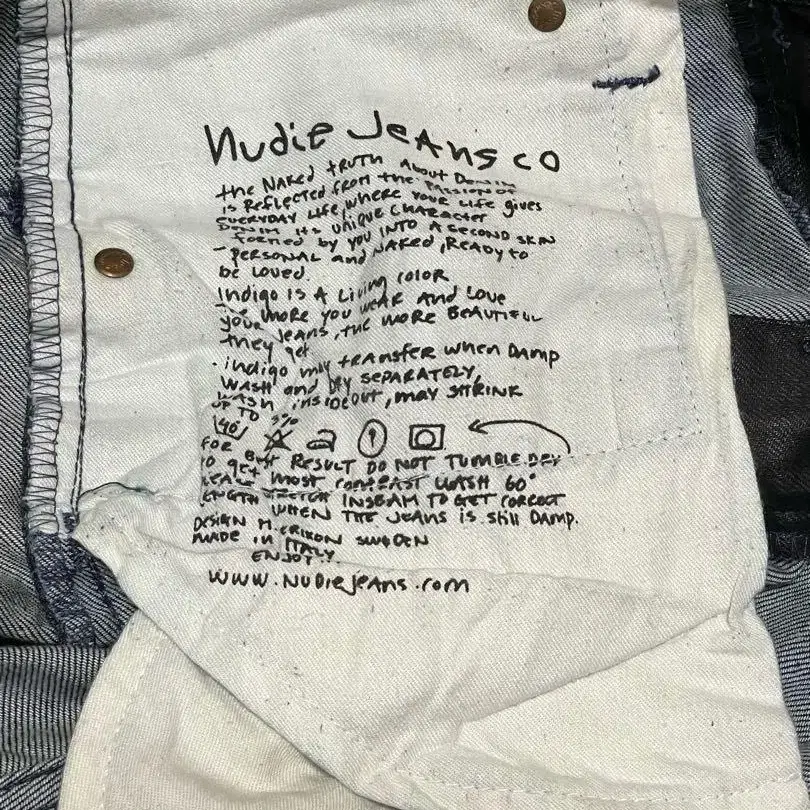 Nudie Jeans co
the NAKED tRUTH About Denim
is REFLECTED FROM the PASSION OF
EVERYDAY LIFE, WHERE YOUR LIFE gives
DENIM ITS UNIQUE CHARACTER
formed by you INTO A SECOND SKIN
- PERSONAL and NAKED, READY to
be LOVED.
Indigo IS A Living color
The more you WEAR AND Love
your Jeans, the MORE BEAUTIFUL
they get
· indigo may tRANSFER WHEN DAMP
WASH and DRY SEPARATELY,
WASH insideout, may SHRINK
UP TO 3%
40°
FOR BEST RESULT DO NOT TUMBLE DRY
to get most contrast WASH 60°
LENGTH STRETCH INSEAM TO GET CORRECT
WHEN THE JEANS is still DAMP.
DESIGN M. ERIXON SWEDEN
MADE in ITALY
ENJOY!
www.NUDIEJeans.com